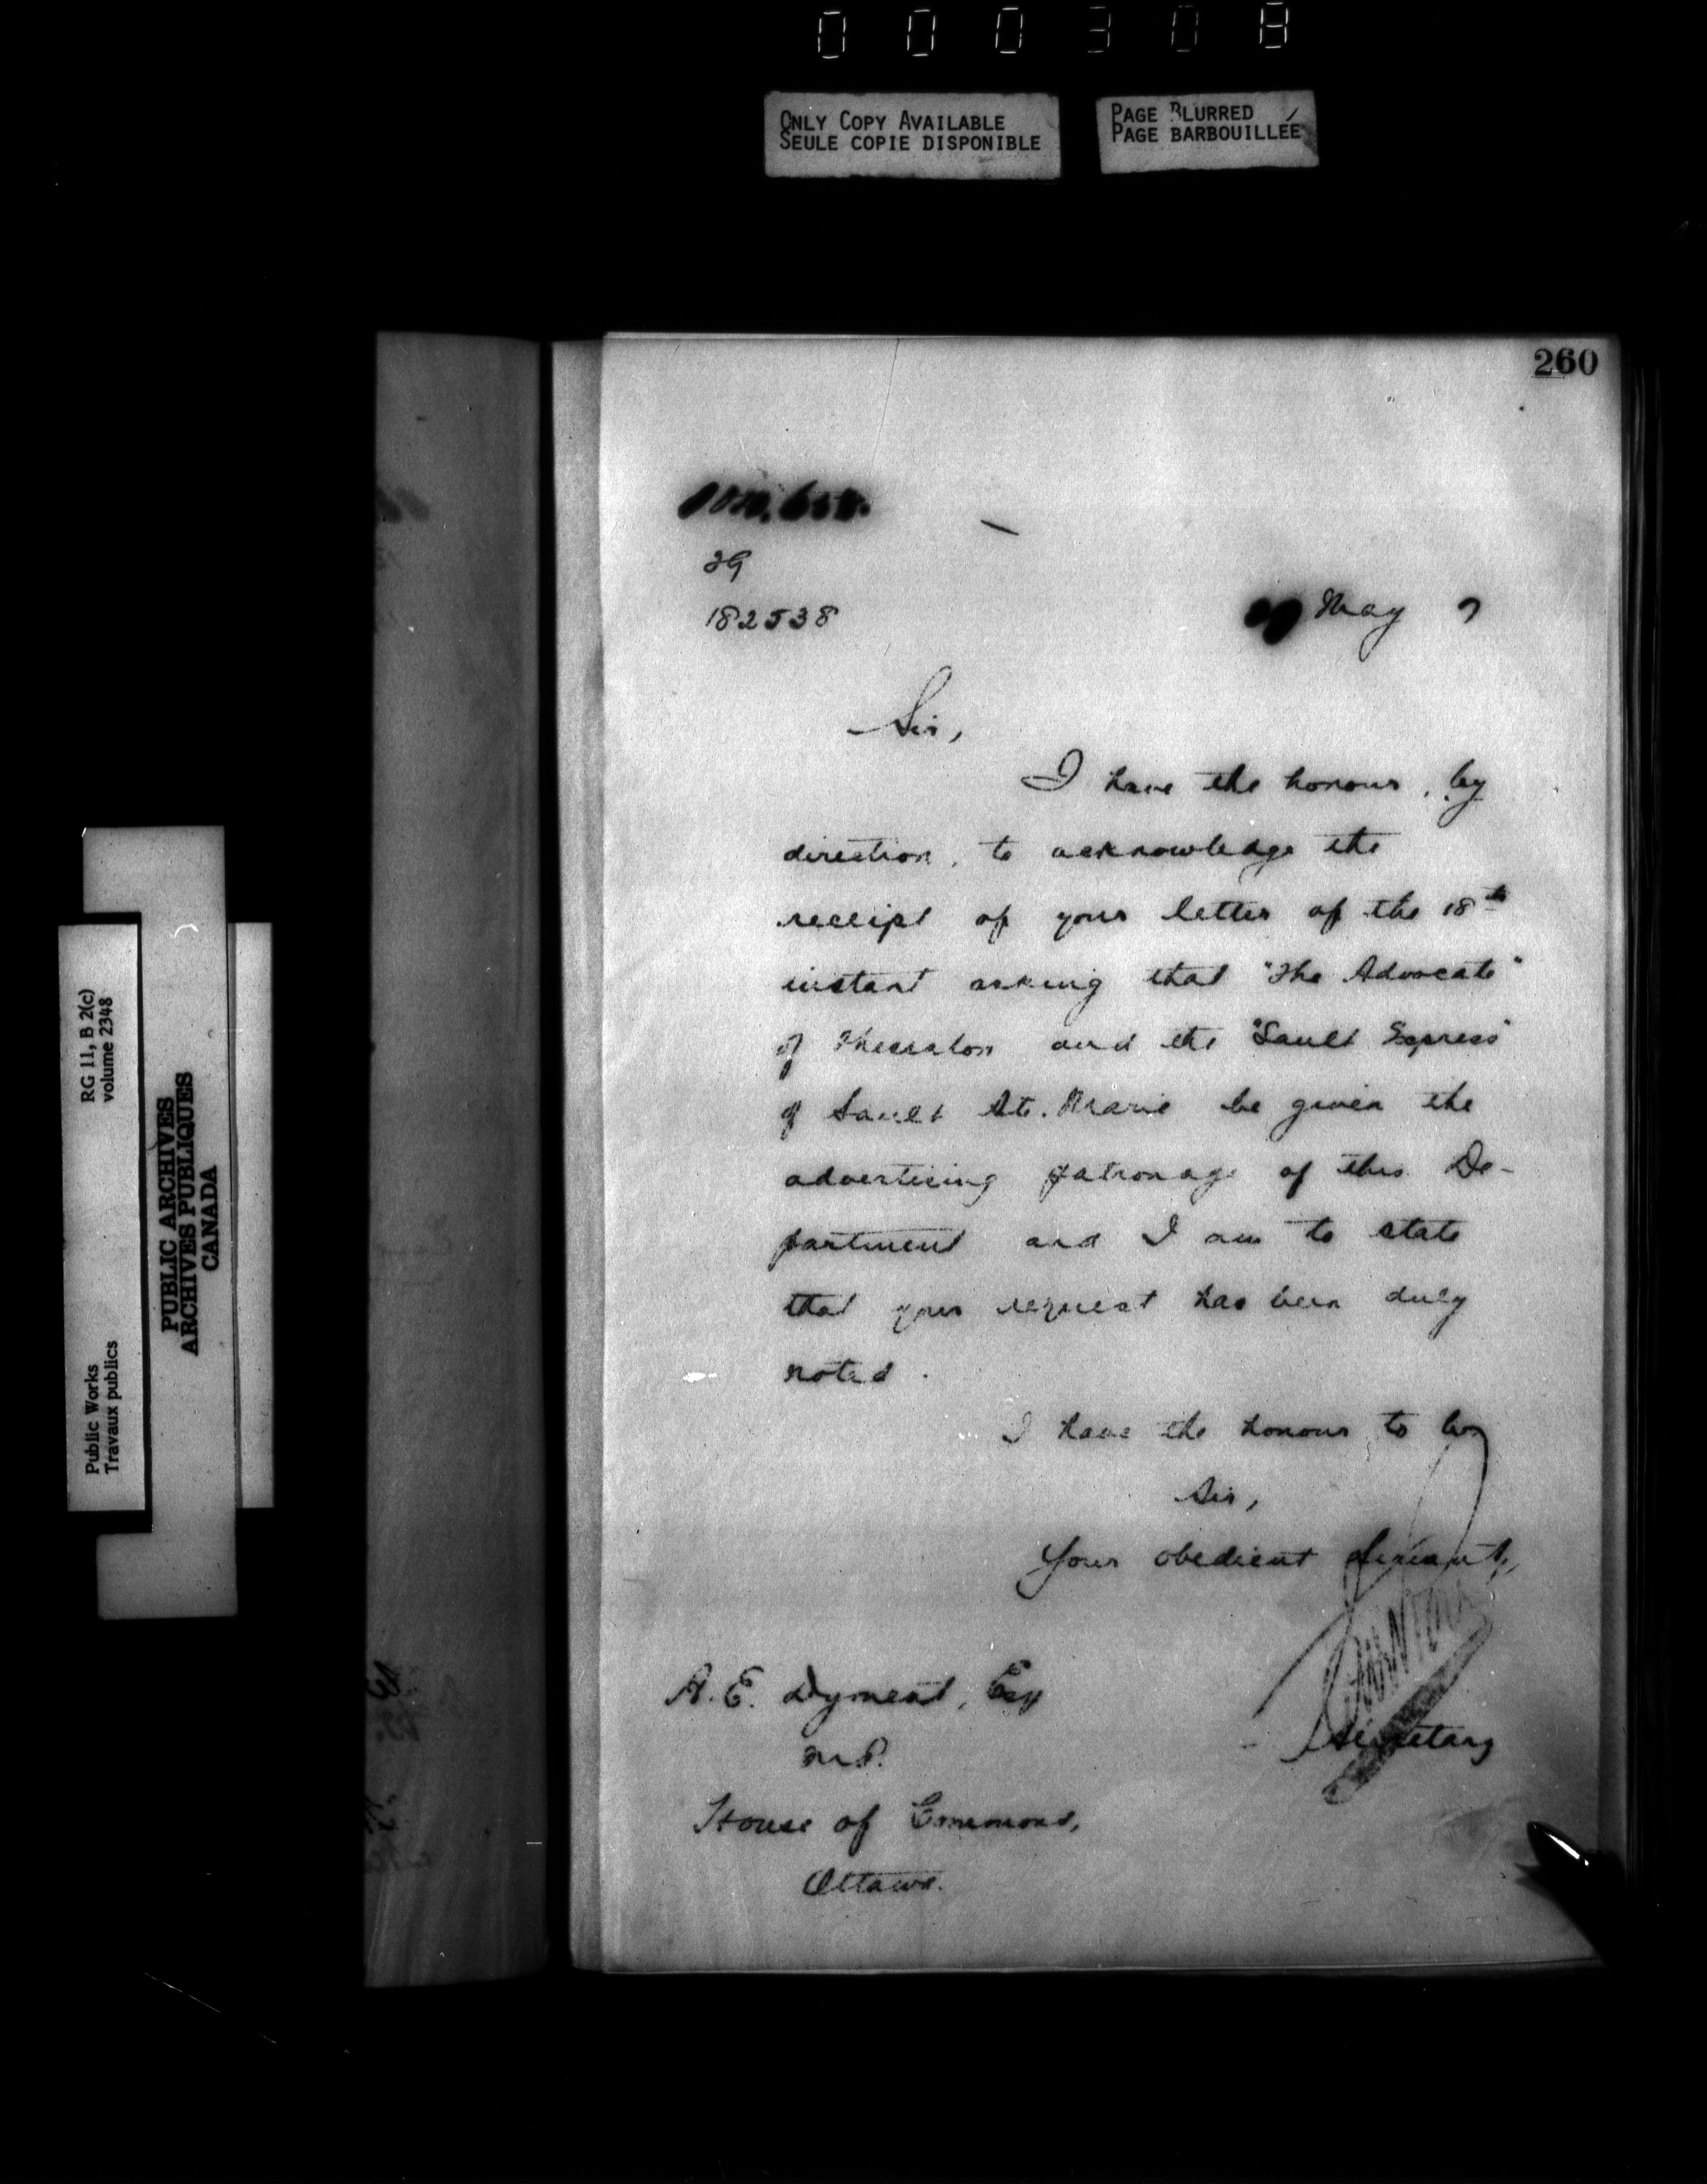 000308
ONLY COPY AVAILABLE
SEULE COPIE DISPONIBLE
PAGE BLURRED
PAGE BARBOUILLÉE
RG 11, B 2(c)
volume 2348
Public Works
Travaux publics
PUBLIC ARCHIVES
ARCHIVES PUBLIQUES
CANADA
260
39
182538
May 7
Sir,
I have the honour, by
direction, to acknowledge the
receipt of your letter of the 18th
instant asking that "The Advocate"
of Thessalon and the "Sault Express"
of Sault Ste. Marie be given the
advertising patronage of this De-
partment and I am to state
that your request has been duly
noted.
I have the honour to be,
Sir,
Your obedient servant,
Secretary
A. E. Dyment, Esq
M.P.
House of Commons,
Ottawa.